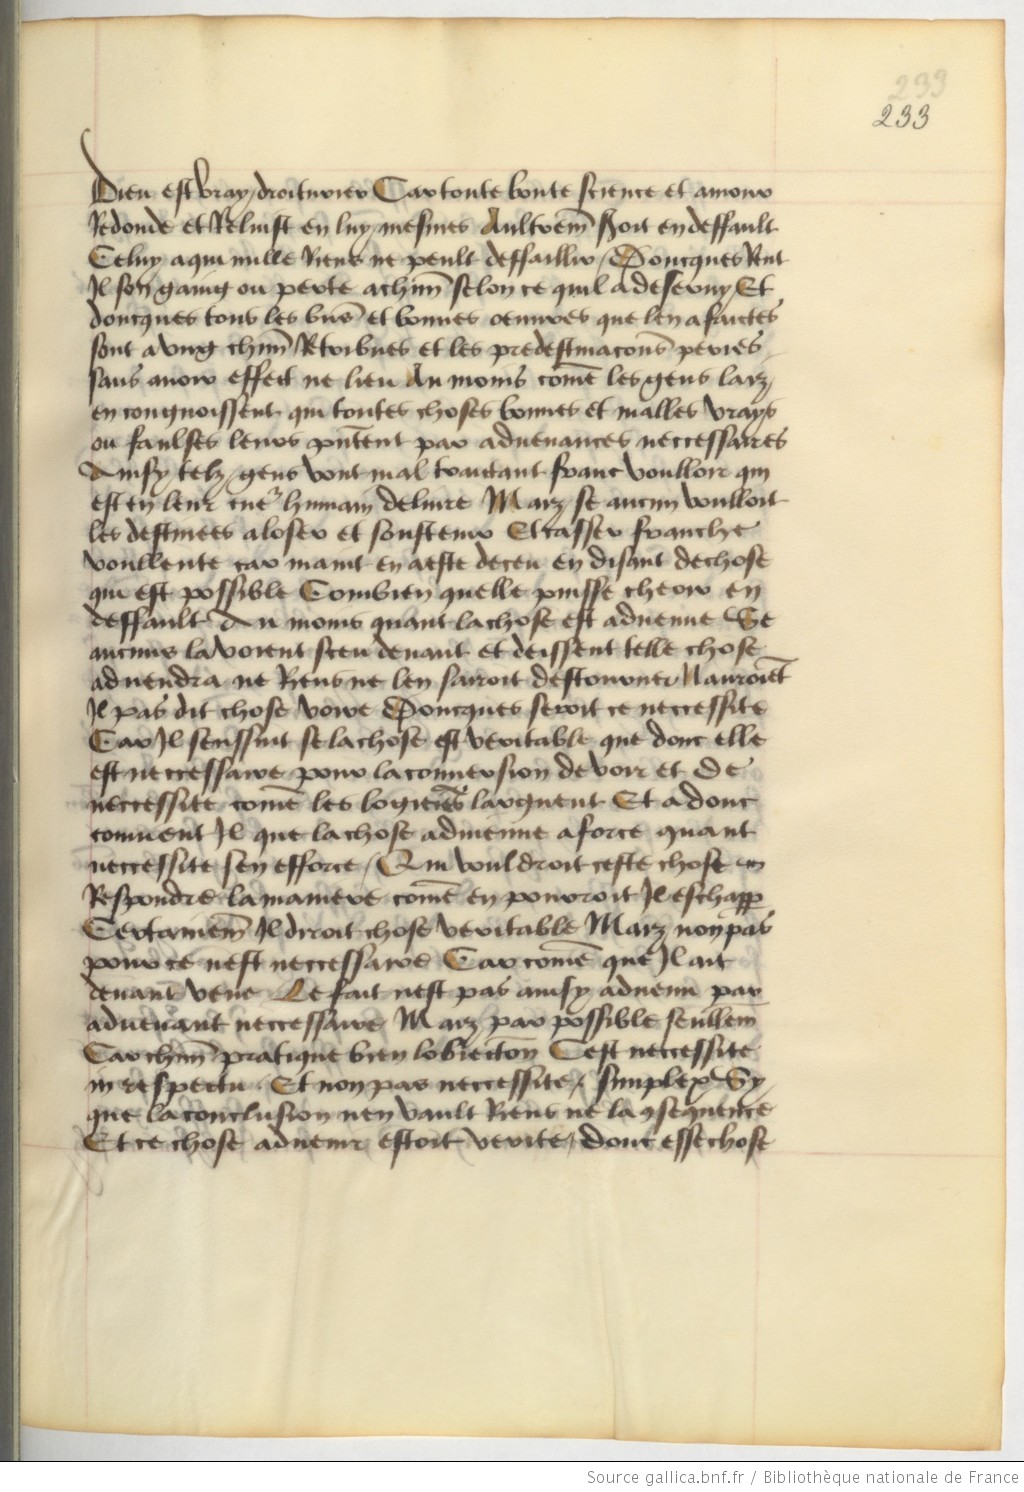 233
233
Dieu est vray droiturier Car toute bonte science et amour
Redonde et Reluist en luy mesmes Aultrem̄ Soit en deffault
Celuy a qui nulle Riens ne peult deffaillir / Doncques Rent
Il son gaing ou perte a chūn selon ce quil a deseruy / Et
doncques tous les bñs et bonnes oeuures que len a faictes
sont a vng chūn Retribues et les predestinacōns peries
sans auoir effect ne lieu Au moins com̄e les gens larz
en congnoissent qui toutes choses bonnes et malles vrays
ou faulses leurs pñtent par aduenances neccessaires
Ainsy telz gens vont mal traictant franc voulloir qui
est en leur cueˢ humain deliure Marz se aucun voulloit
les destinees aloser et soustenir Et casser franche
voullente car maint en a este deceu en disant de chose
qui est possible Combien quelle puisse cheoir en
deffault Au moins quant la chose est aduenue Se
aucuns lauoient sceu deuant et deissent telle chose
aduendra ne Riens ne len sauroit destourner Nauroiēt
Il pas dit chose voire Doncques seroit ce neccessite
Car Il sensuit se la chose est veritable que donc elle
est neccessaire pour la conuersion de voir et De
neccessite com̄e les logiciēs larguent Et a donc
conuient Il que la chose aduienne a force quant
neccessite sen efforce / Qui vouldroit ceste chose en
Respondre la maniere com̄e en pourroit Il eschapp
Certainem̄ Il diroit chose veritable Marz non pas
pour ce nest neccessaire Car com̄e que Il ait
deuant veue Le fait nest pas ainsy aduenu par
aduenant neccessaire Marz par possible seullem̄
Car chūn pratique bien lobieciton Cest neccessite
in respectu . Et non pas neccessite / simplex Sy
que la conclusion nen vault Riens ne la 9sequence
Et ce chose aduenir estoit verite / donc esse chose
Source gallica.bnf.fr / Bibliothèque nationale de France